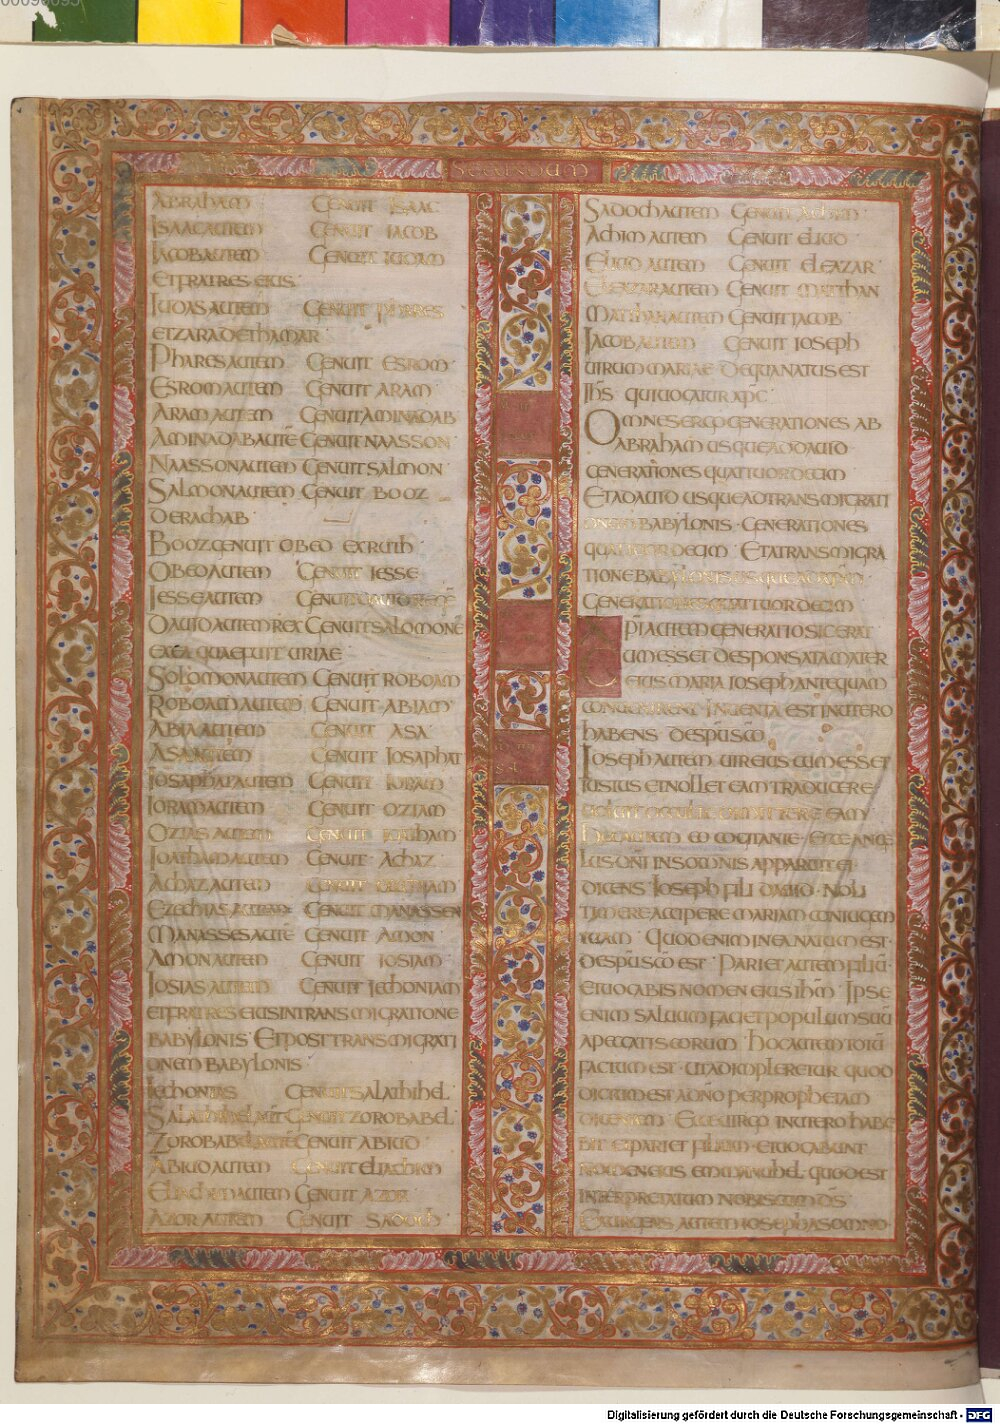 00096095
SECUNDUM
ABRAHAM GENUIT ISAAC
ISAAC AUTEM GENUIT IACOB
IACOB AUTEM GENUIT IUDAM
ET FRATRES EIUS
IUDAS AUTEM GENUIT PHARES
ET ZARA DE THAMAR
PHARES AUTEM GENUIT ESROM
ESROM AUTEM GENUIT ARAM
ARAM AUTEM GENUIT AMINADAB
AMINADAB AUTĒ GENUIT NAASSON
NAASSON AUTEM GENUIT SALMON
SALMON AUTEM GENUIT BOOZ
DE RACHAB
BOOZ GENUIT OBED EX RUTH
OBED AUTEM GENUIT IESSE
IESSE AUTEM GENUIT DAUID REGĒ
DAUID AUTEM REX GENUIT SALOMONĒ
EX EA QUAE FUIT URIAE
SOLOMON AUTEM GENUIT ROBOAM
ROBOAM AUTEM GENUIT ABIAM
ABIA AUTEM GENUIT ASA
ASA AUTEM GENUIT IOSAPHAT
IOSAPHAT AUTEM GENUIT IORAM
IORAM AUTEM GENUIT OZIAM
OZIAS AUTEM GENUIT IOATHAM
IOATHAM AUTEM GENUIT ACHAZ
ACHAZ AUTEM GENUIT
EZECHIAS AUTEM GENUIT MANASSEN
MANASSES AUTĒ GENUIT AMON
AMON AUTEM GENUIT IOSIAM
IOSIAS AUTEM GENUIT IECHONIAM
ET FRATRES EIUS IN TRANSMIGRATIONE
BABYLONIS ET POST TRANSMIGRATI
ONEM BABYLONIS
IECHONIAS GENUIT SALATHIHEL
SALATHIHEL AUT GENUIT ZOROBABEL
ZOROBABEL AUTĒ GENUIT ABIUD
ABIUD AUTEM GENUIT ELIACHIM
ELIACHIM AUTEM GENUIT AZOR
AZOR AUTEM GENUIT SADOCH
SADOCH AUTEM GENUIT ACHIM
ACHIM AUTEM GENUIT ELIUD
ELIUD AUTEM GENUIT ELEAZAR
ELEAZAR AUTEM GENUIT MATTHAN
MATTHAN AUTEM GENUIT IACOB
IACOB AUTEM GENUIT IOSEPH
UIRUM MARIAE DE QUA NATUS EST
IHS QUI UOCATUR XPC
OMNES ERGO GENERATIONES AB
ABRAHAM USQUE AD DAUID
GENERATIONES QUATTUORDECIM
ET A DAUID USQUE AD TRANSMIGRATI
ONEM BABYLONIS GENERATIONES
QUATTUORDECIM ET A TRANSMIGRA
TIONE BABYLONIS USQUE AD XPM
GENERATIONES QUATTUORDECIM
XPI AUTEM GENERATIO SIC ERAT
CUM ESSET DESPONSATA MATER
EIUS MARIA IOSEPH ANTEQUAM
CONUENIRENT INUENTA EST IN UTERO
HABENS DE SPU SCO
IOSEPH AUTEM UIR EIUS CUM ESSET
IUSTUS ET NOLLET EAM TRADUCERE
UOLUIT OCCULTE DIMITTERE EAM
HAEC AUTEM EO COGITANTE ECCE ANGE
LUS DNI IN SOMNIS APPARUIT EI
DICENS IOSEPH FILI DAUID NOLI
TIMERE ACCIPERE MARIAM CONIUGEM
TUAM QUOD ENIM IN EA NATUM EST
DE SPU SCO EST PARIET AUTEM FILIŪ
ET UOCABIS NOMEN EIUS IHM IPSE
ENIM SALUUM FACIET POPULUM SUŪ
A PECCATIS EORUM HOC AUTEM TOTŪ
FACTUM EST UT ADIMPLERETUR QUOD
DICTUM EST A DNO PER PROPHETAM
DICENTEM ECCE UIRGO IN UTERO HABE
BIT ET PARIET FILIUM ET UOCABUNT
NOMEN EIUS EMMANUHEL QUOD EST
INTERPRETATUM NOBISCUM DS
EXURGENS AUTEM IOSEPH A SOMNO
Digitalisierung gefördert durch die Deutsche Forschungsgemeinschaft - DFG